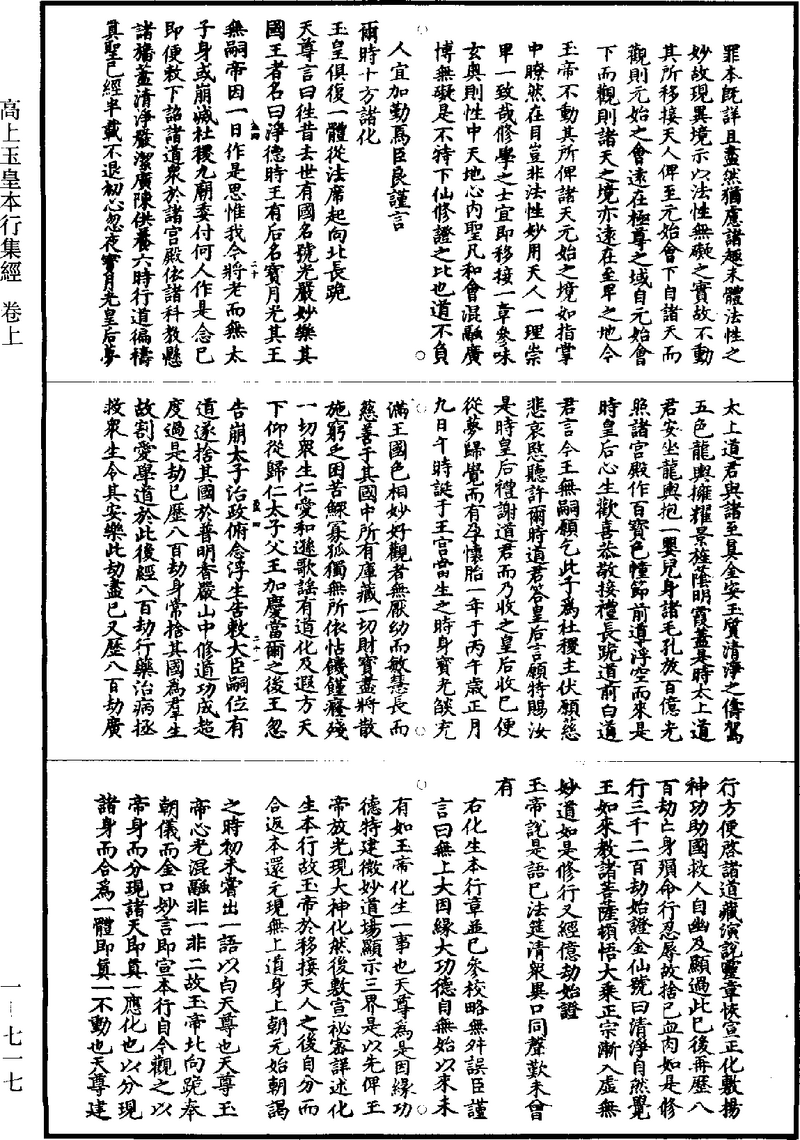 高上玉皇本行集經　卷上
罪本既詳且盡然猶應諸趣未體法性之
妙故現異境示以法性無礙之實故不動
其所移接天人俾至元始會下自諸天而
觀則元始之會遠在極尊之域自元始會
下而觀則諸天之境亦遠在至卑之地今
玉帝不動其所俾諸天元始之境如指掌
中瞭然在目豈非法性妙用天人一理崇
卑一致哉修學之士宜即移接一章參味
玄奧則性中天地心內聖凡和會混融廣
博無礙是不特下仙修證之比也道不負
人宜加勤焉臣良謹言
爾時十方諸化
玉皇俱復一體從法席起向北長跪
天尊言曰往昔去世有國名號光嚴妙樂其
國王者名曰淨德時王有后名寶月光其王
無嗣帝因一日作是思惟我今將老而無太
子身或崩滅社稷九廟委付何人作是念已
即便敕下詔諸道眾於諸宮殿依諸科教懸
諸旛蓋清淨嚴潔廣陳供養六時行道徧禱
真聖已經半載不退初心忽夜寶月光皇后夢
太上道君與諸至真金姿玉質清淨之儔駕
五色龍輿擁耀景旌蔭明霞蓋是時太上道
君安坐龍輿抱一嬰兒身諸毛孔放百億光
照諸宮殿作百寶色幢節前導浮空而來是
時皇后心生歡喜恭敬接禮長跪道前白道
君言今王無嗣願乞此子為社稷主伏願慈
悲哀愍聽許爾時道君答皇后言願特賜汝
是時皇后禮謝道君而乃收之皇后收已便
從夢歸覺而有孕懷胎一年于丙午歲正月
九日午時誕于王宮當生之時身寶光燄充
滿王國色相妙好觀者無厭幼而敏慧長而
慈善于其國中所有庫藏一切財寶盡將散
施窮乏困苦鰥寡孤獨無所依怙饑饉癃殘
一切眾生仁愛和遜歌謠有道化及遐方天
下仰從歸仁太子父王加慶當爾之後王忽
告崩太子治政俯念浮生告敕大臣嗣位有
道遂捨其國於普明香嚴山中修道功成超
度過是劫已歷八百劫身常捨其國為羣生
故割愛學道於此後經八百劫行藥治病拯
救眾生令其安樂此劫盡已又歷八百劫廣
行方便啓諸道藏演說靈章恢宣正化敷揚
神功助國救人自幽及顯過此已後再歷八
百劫亡身殞命行忍辱故捨己血肉如是修
行三千二百劫始證金仙號曰清淨自然覺
王如來教諸菩薩頓悟大乘正宗漸入虛無
妙道如是修行又經億劫始證
玉帝說是語已法筵清眾異口同聲歎未曾
有
右化生本行章並已參校略無舛誤臣謹
言曰無上大因緣大功德自無始以來未
有如玉帝化生一事也天尊為是因緣功
德特建微妙道場顯示三界是以先俾玉
帝放光現大神化然後敷宣祕密詳述化
生本行故玉帝於移接天人之後自分而
合返本還元現無上道身上朝元始朝謁
之時初未嘗出一語以白天尊也天尊玉
帝心光混融非一非二故玉帝北向跪奉
朝儀而金口妙言即宣本行自今觀之以
帝身而分現諸天即真一應化也以分現
諸身而合為一體即真一不動也天尊建
一—七一七